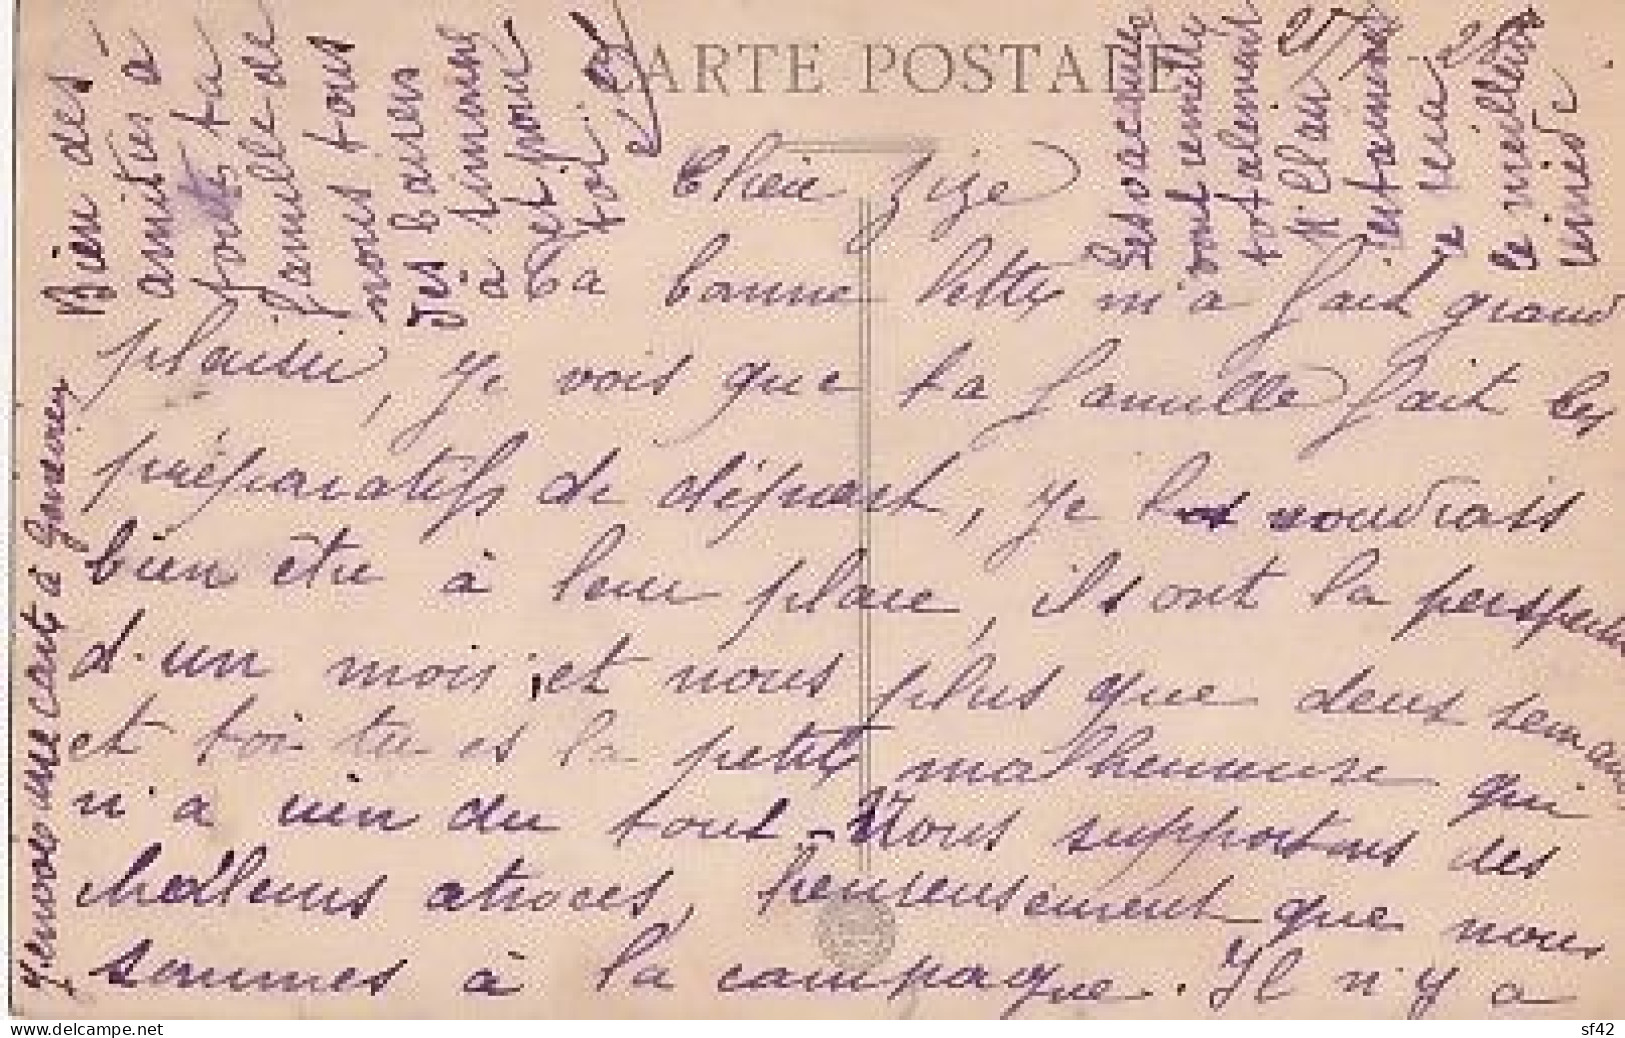 CARTE POSTALE
Chère Zize
Ta bonne lettre m'a fait grand
plaisir, je vois que ta famille fait les
préparatifs de départ, je voudrais
bien être à leur place, ils ont la perspective
d'un mois, et nous plus que deux semaines
et toi tu es la petite malheureuse qui
n'a rien du tout. Nous supportons des
chaleurs atroces, heureusement que nous
sommes à la campagne. Il n'y a
Bien des
amitiés à
toute ta
famille de
nous tous
des baisers
à Simone
et pour
toi
Les vacances
vont remettre
totalement
entammé
ce sera
le meilleur
remède
J'envoie une carte à
sf42